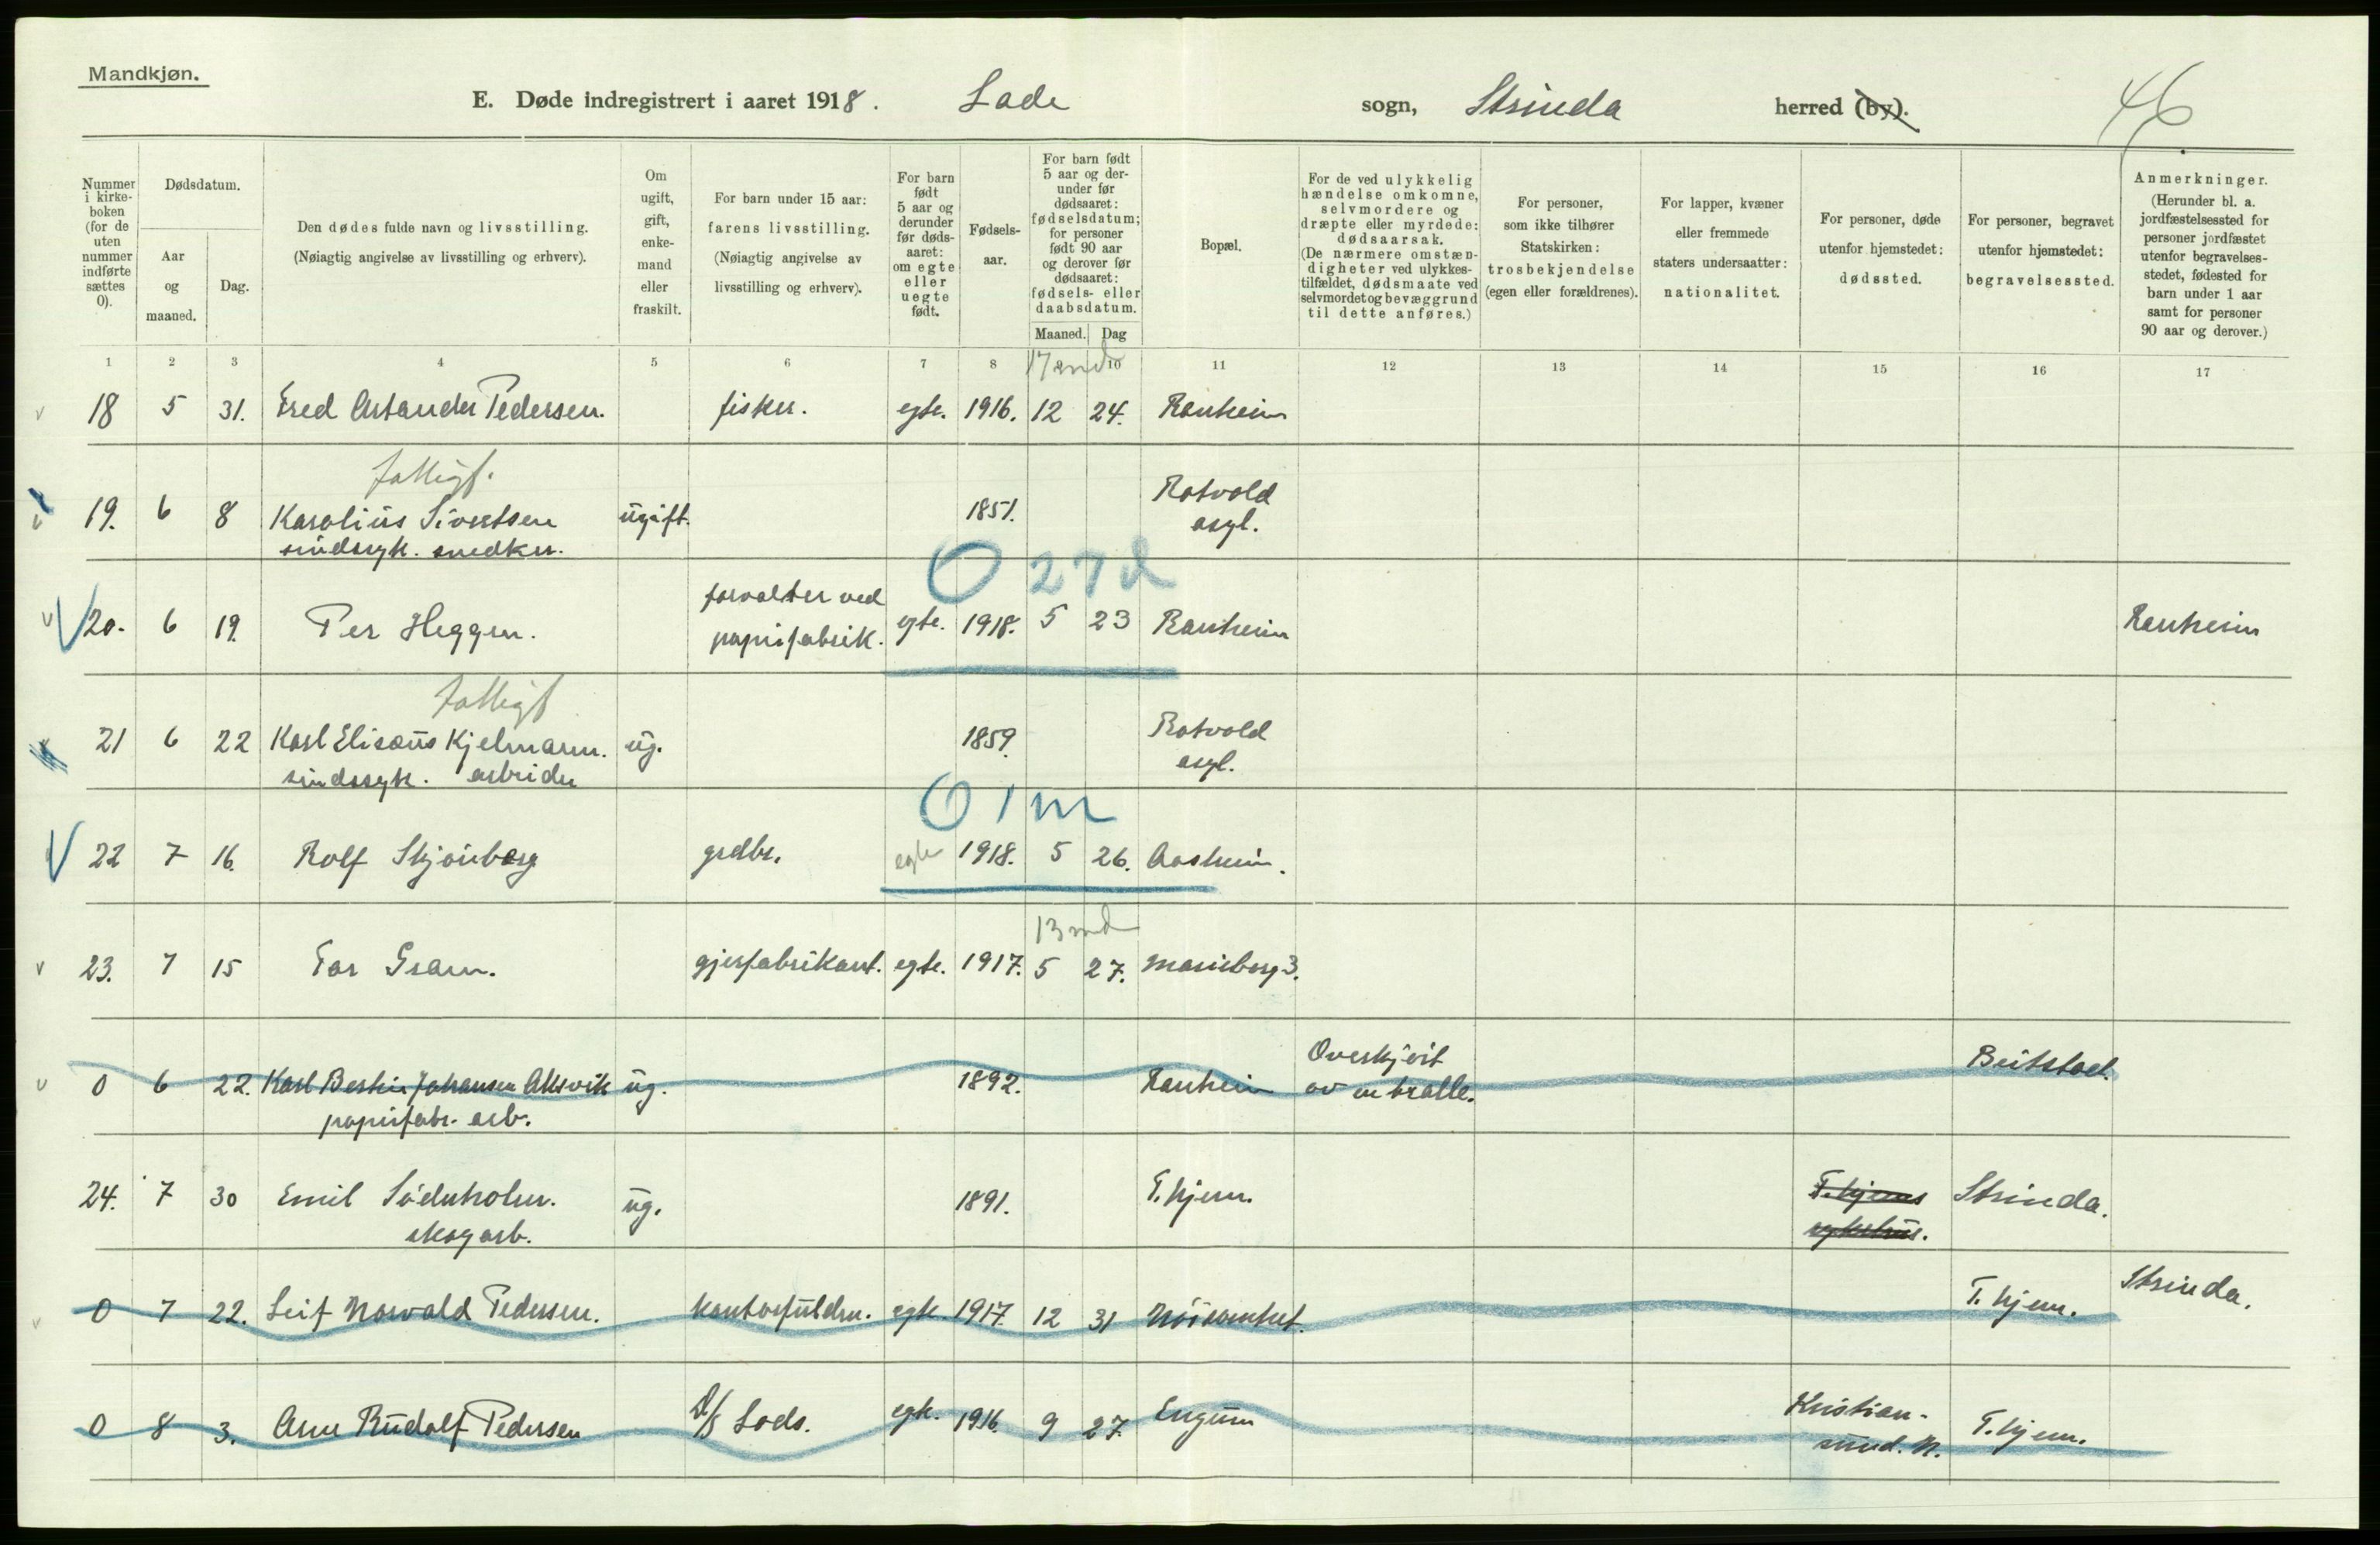 Mandkjøn.
E. Døde indregistrert i aaret 1918. Lade sogn, Strinda herred (by). 46
Nummer i kirkeboken (for de uten nummer indførte sættes 0).
Dødsdatum.
Aar og maaned.
Dag.
Den dødes fulde navn og livsstilling.
(Nøiagtig angivelse av livsstilling og erhverv).
Om ugift, gift, enkemand eller fraskilt.
For barn under 15 aar: farens livsstilling.
(Nøiagtig angivelse av livsstilling og erhverv).
For barn født 5 aar og derunder før dødsaaret: om egte eller uegte født.
Fødselsaar.
For barn født 5 aar og derunder før dødsaaret: fødselsdatum; for personer født 90 aar og derover før dødsaaret: fødsels- eller daabsdatum.
Maaned. Dag
Bopæl.
For de ved ulykkelig hændelse omkomne, selvmordere og dræpte eller myrdede: dødsaarsak.
(De nærmere omstændigheter ved ulykkestilfældet, dødsmaate ved selvmordet og bevæggrund til dette anføres.)
For personer, som ikke tilhører Statskirken: trosbekjendelse (egen eller forældrenes).
For lapper, kvæner eller fremmede staters undersaatter: nationalitet.
For personer, døde utenfor hjemstedet: dødssted.
For personer, begravet utenfor hjemstedet: begravelsessted.
Anmerkninger.
(Herunder bl. a. jordfæstelsessted for personer jordfæstet utenfor begravelsesstedet, fødested for barn under 1 aar samt for personer 90 aar og derover.)
1 2 3 4 5 6 7 8 10 11 12 13 14 15 16 17
17 md
v 18 5 31. Pedersen. fisker. egte. 1916. 12 24. Ranheim
fattigf.
19. 6 8 Karolius Sivertsen ugift. 1851. Rotvold asyl.
sindssyk. snedker.
0 27 d
v 20. 6 19. Per Heggen. forvalter ved papirfabrik. egte. 1918. 5 23 Ranheim Ranheim
fattigf
21 6 22 Karl Elisæus Kjelmann. ug. 1859. Rotvold asyl.
sindssyk. arbeider
0 1 m
V 22 7 16. Rolf Skjönberg grdbr. egte 1918. 5 26. Aasheim.
13 md
v 23. 7 15 Tor Gram. gjerfabrikant. egte. 1917. 5 27. Marieborg 3.
v 0 6 22. Karl Johansen ug. 1892. Ranheim Overkjört av en tralle. Beitstad.
papirfabr. arb.
24. 7 30 Emil Söderholm. ug. 1891. T.hjem. T.hjems sykehus. Strinda.
skogarb.
v 0 7 22. Leif Norvald Pedersen. kontorfuldm. egte. 1917. 12 31 Nöisomhet. T.hjem. Strinda.
0 8 3. Arne Rudolf Pedersen D/S Lods. egte. 1916. 9 27. Engum Kristiansund. N. T.hjem.